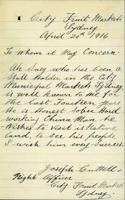 City Fruit Markets
Sydney
April 20th 1916
To whom it may Concern
Ah Suey who has been a
Stall Holder in the City
Municipal Market Sydney
is well known to me for
the Last fourteen years
He is Honest Sober Hard
working China Man he
Wishes to visit is Native
Land to see his people
I wish him every Success
Joseph
Night Officer
City Fruit Markets
Sydney